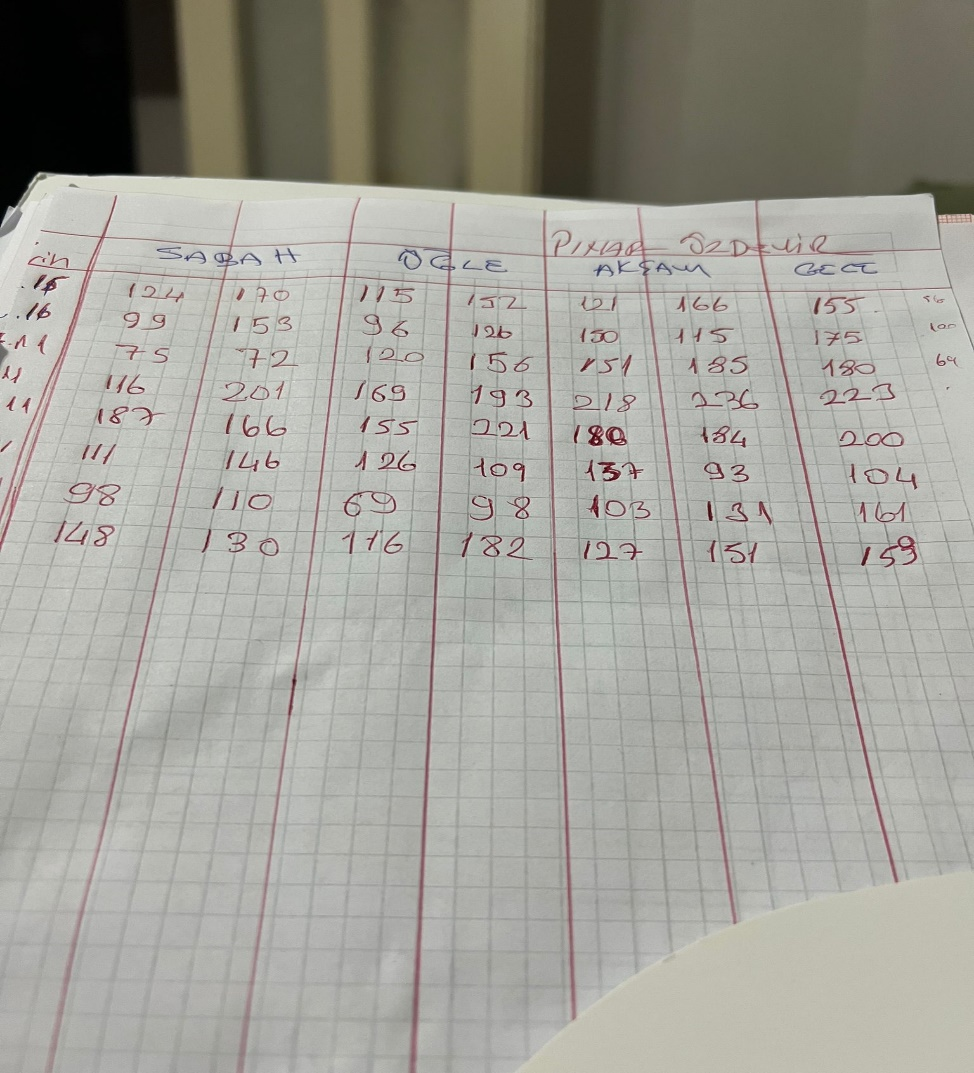 PINAR ÖZDEMİR
SABAH ÖĞLE AKŞAM GECE
124 170 115 152 121 166 155 56
99 153 96 126 150 115 175 100
75 72 120 156 151 185 180 64
116 201 169 193 218 236 223
187 166 155 221 180 184 200
111 146 126 109 137 93 104
98 110 69 98 103 131 161
148 130 116 182 127 151 159